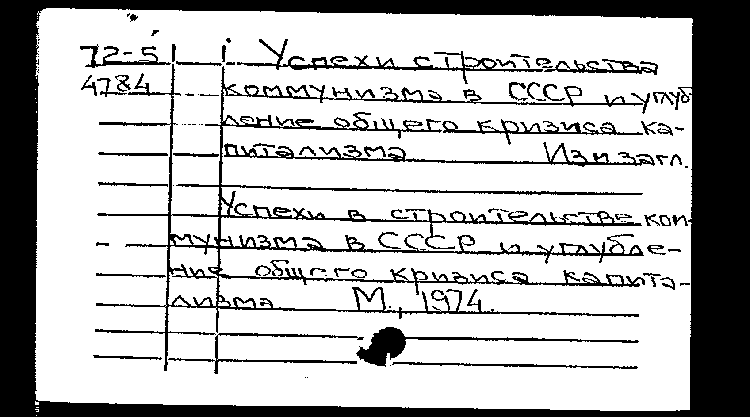 72-5 Успехи строительства
4784 коммунизма в СССР и углуб
ление общего кризиса ка-
питализма Изм загл.
Успехи в строительстве ком-
мунизма в СССР и углубле-
ние общего кризиса капита-
лизма М., 1974.